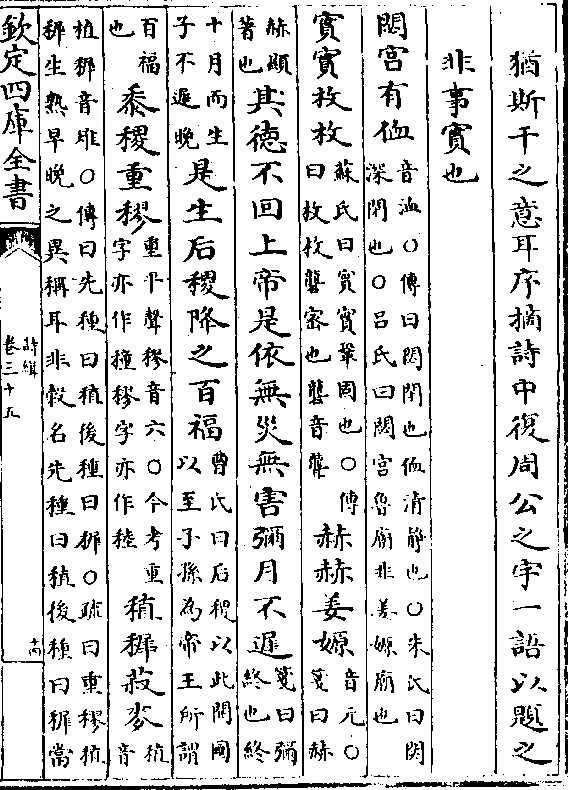 猶斯干之意耳序摘詩中復周公之宇一語以題之
非事實也
閟宮有侐音洫○傳曰閟閉也侐清靜也○朱氏曰閟
深閉也○呂氏曰閟宮魯廟非姜嫄廟也
實實枚枚蘇氏曰實實鞏固也○傳
曰枚枚礱密也礱音聾
赫赫姜嫄音元○
箋曰赫
赫顯
著也
其德不回上帝是依無災無害彌月不遲箋曰彌
終也終
十月而生
子不遲晚
是生后稷降之百福曹氏曰后稷以此開國
以至子孫為帝王所謂
百福
也
黍稷重穋重平聲穋音六○今考重
字亦作穜穋字亦作稑
稙稺菽麥稙
音
稙稺音雉○傳曰先種曰稙後種曰稺○疏曰重穋稙
稺生熟早晚之異稱耳非穀名先種曰稙後種曰稺當
欽定四庫全書
詩緝
卷三十五
十六